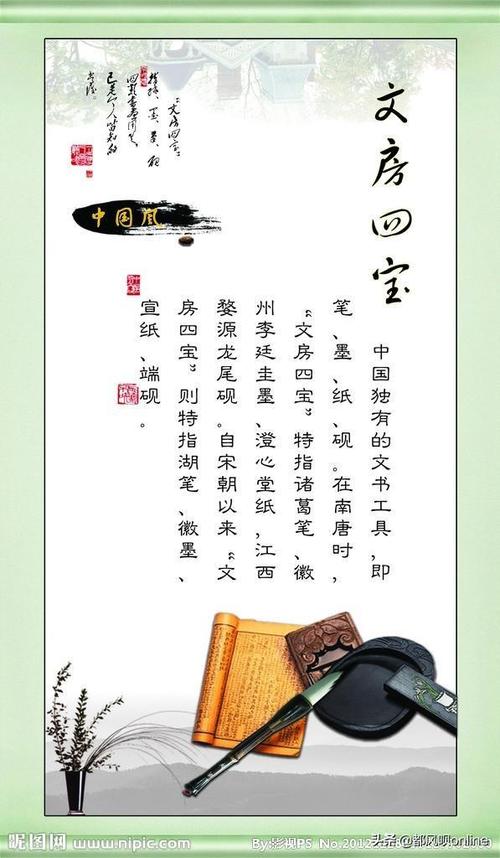 文房四宝
中国独有的文书工具,即
笔、墨、纸、砚。在南唐时,
“文房四宝”特指诸葛笔、徽
州李廷圭墨、澄心堂纸,江西
婺源龙尾砚。自宋朝以来“文
房四宝”则特指湖笔、徽墨、
宣纸、端砚。
“文房四宝”
中国风
昵图网
www.nipic.com
By:影视PS No.2012
头条 @都风呗online